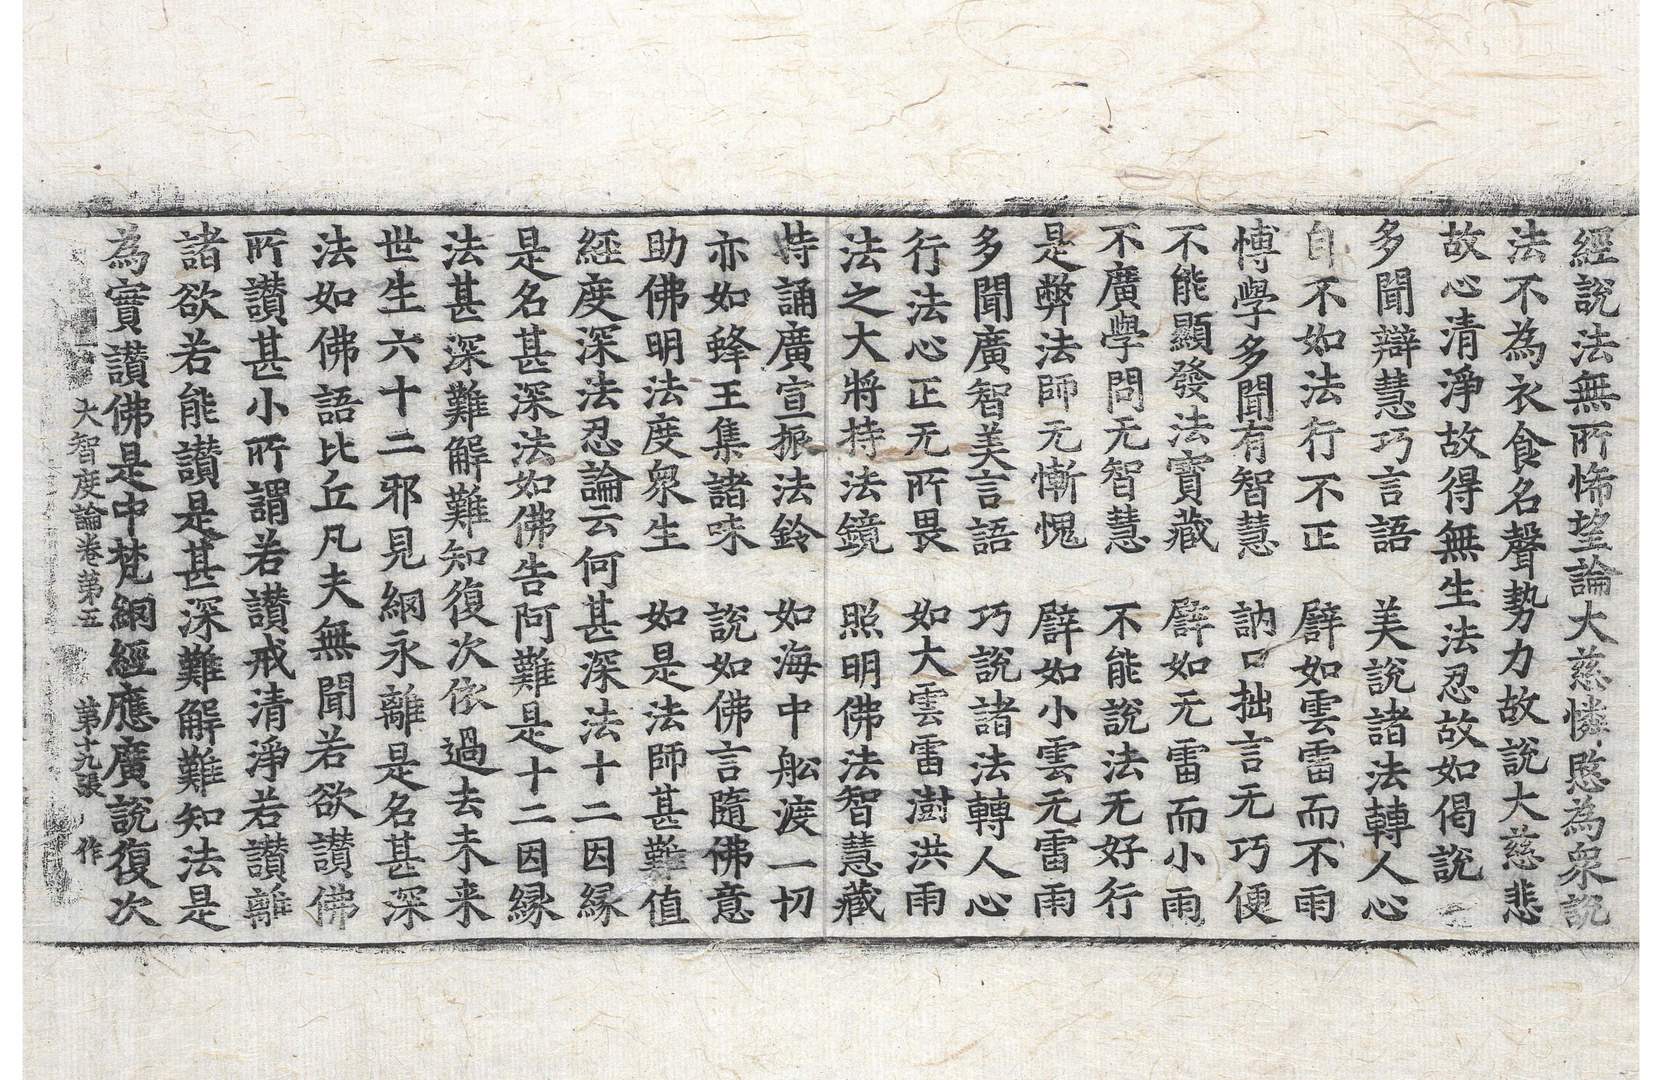 經說法無所悕望論大慈憐愍為衆說
法不為衣食名聲勢力故說大慈悲
故心清淨故得無生法忍故如偈說
多聞辯慧巧言語　美說諸法轉人心
自不如法行不正　譬如雲雷而不雨
愽學多聞有智慧　訥口拙言无巧便
不能顯發法寶藏　譬如无雷而小雨
不廣學問无智慧　不能說法无好行
是弊法師无慚愧　譬如小雲无雷雨
多聞廣智美言語　巧說諸法轉人心
行法心正无所畏　如大雲雷澍洪雨
法之大將持法鏡　照明佛法智慧藏
持誦廣宣振法鈴　如海中舩渡一切
亦如蜂王集諸味　說如佛言隨佛意
助佛明法度衆生　如是法師甚難值
經度深法忍論云何甚深法十二因緣
是名甚深法如佛告阿難是十二因緣
法甚深難解難知復次依過去未来
世生六十二邪見網永離是名甚深
法如佛語比丘凡夫無聞若欲讃佛
所讃甚小所謂若讃戒清淨若讃離
諸欲若能讃是甚深難解難知法是
為實讃佛是中梵網經應廣說復次
大智度論卷第五　第十九張　作